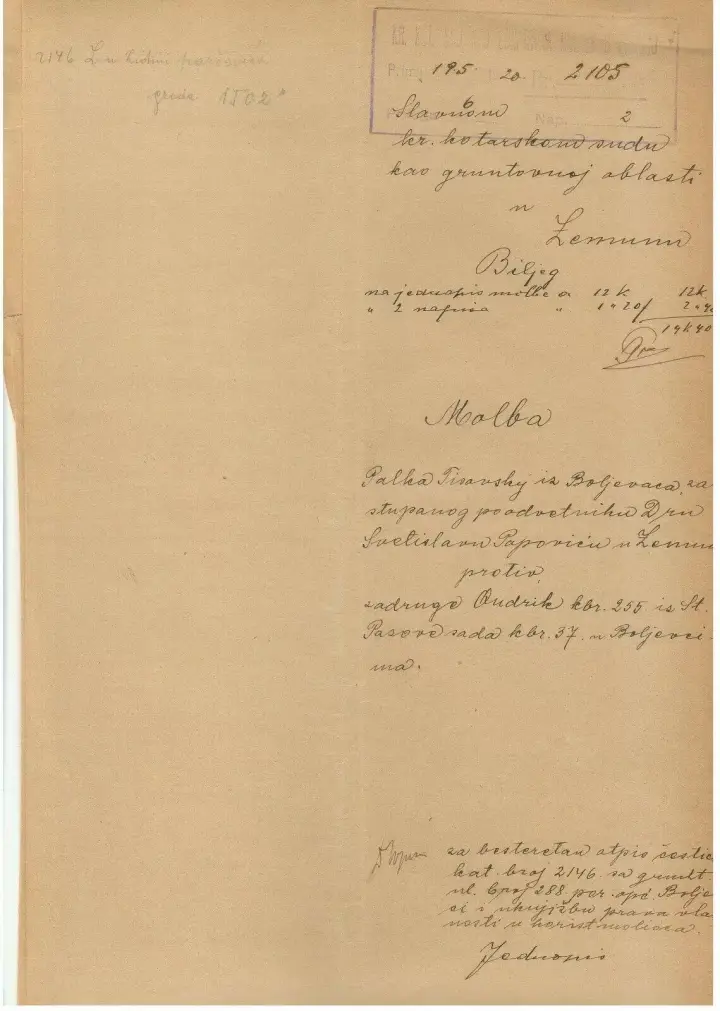 2146
1502
19 5 20 2105
6 2
Slavnom
kr. kotarskom sudu
kao gruntovnoj oblasti
u
Zemunu
Biljeg
na jednopis molbe a 12 k 12k
" 2 napisa " 1 " 20 f
14 k 40
Molba
Palka Tisovskij iz Boljevaca, za
stupanog po odvetniku Dru
Svetislavu Popoviću u Zemu
protiv
zadruge Ondrik kbr. 255 iz St.
Pazove sada kbr. 37. u Boljevci
ma.
za besteretan otpis čestic
kat. broj 2146 sa grunt
ul. broj 288 por. opć. Bolje
ci i uknjižbu prava vla
nosti u korist molioca.
Jednopis